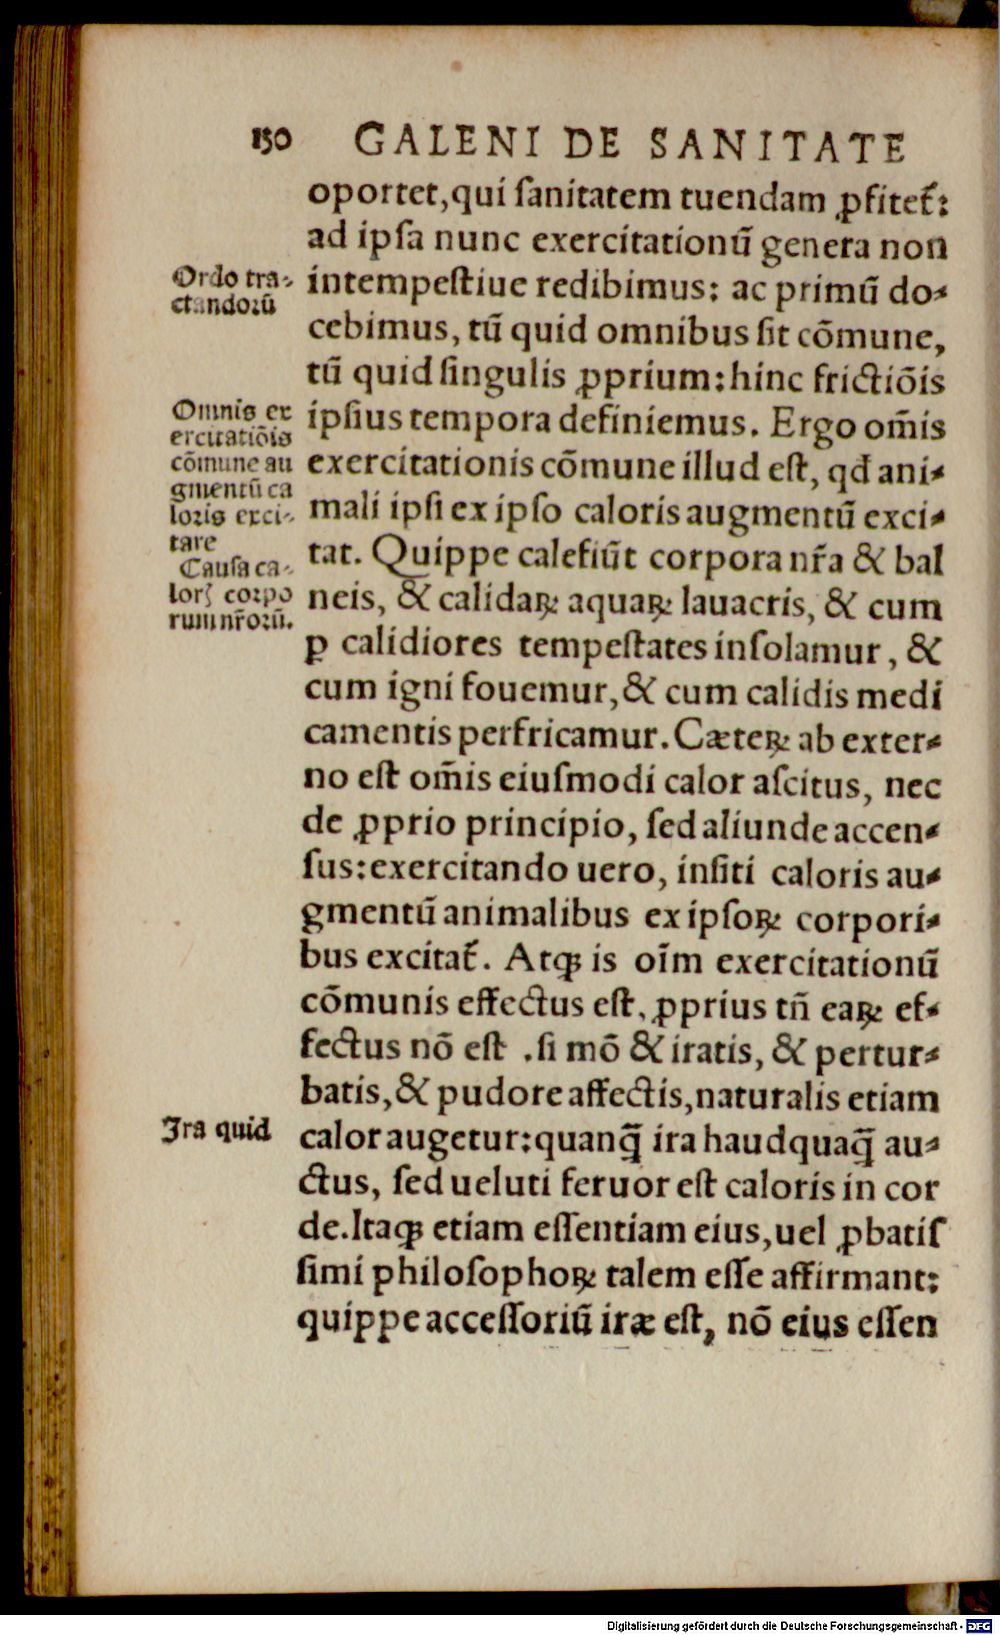 150 GALENI DE SANITATE
oportet, qui ſanitatem tuendam ꝓfitet᷑:
ad ipſa nunc exercitationũ genera non
Ordo tra⸗
ctandoꝛũ
intempeſtiue redibimus: ac primũ do⸗
cebimus, tũ quid omnibus ſit cõmune,
tũ quid ſingulis ꝓprium: hinc frictiõis
Omnis ex
ercitatiõis
cõmune au
gmentũ ca
loꝛis exci⸗
tare
ipſius tempora definiemus. Ergo om̃is
exercitationis cõmune illud eſt, qđ ani⸗
mali ipſi ex ipſo caloris augmentũ exci⸗
Cauſa ca⸗
lorꝭ coꝛpo
rum nr̃oꝛũ.
tat. Quippe calefiũt corpora nr̃a & bal
neis, & calidaꝝ aquaꝝ lauacris, & cum
ꝑ calidiores tempeſtates inſolamur, &
cum igni fouemur, & cum calidis medi
camentis perfricamur. Cæteꝝ ab exter⸗
no eſt om̃is eiuſmodi calor aſcitus, nec
de ꝓprio principio, ſed aliunde accen⸗
ſus: exercitando uero, inſiti caloris au⸗
gmentũ animalibus ex ipſoꝝ corpori⸗
bus excitat᷑. Atqꝫ is oĩm exercitationũ
cõmunis effectus eſt, ꝓprius tñ eaꝝ ef⸗
fectus nõ eſt .ſi mõ & iratis, & pertur⸗
batis, & pudore affectis, naturalis etiam
Ira quid
calor augetur: quanq̃ ira haudquaq̃ au⸗
ctus, ſed ueluti feruor eſt caloris in cor
de. Itaqꝫ etiam eſſentiam eius, uel ꝓbatiſ
ſimi philoſophoꝝ talem eſſe affirmant:
quippe acceſſoriũ iræ eſt, nõ eius eſſen
Digitalisierung gefördert durch die Deutsche Forschungsgemeinschaft - DFG